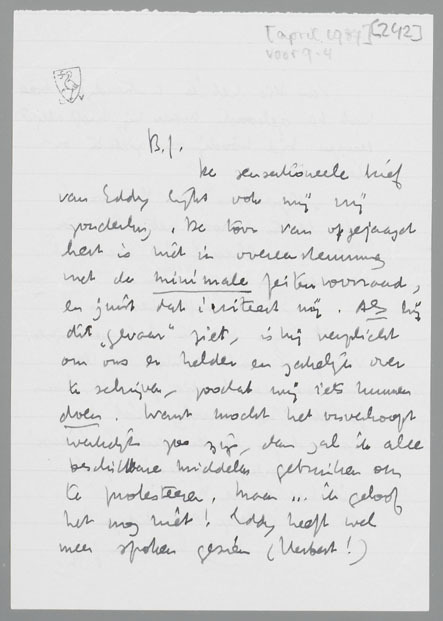 [april 1939] [242]
voor 9-4
B.J.
De sensationeele brief
van Eddy lijkt ook mij vrij
zonderling. De toon van opgejaagd
hert is niet in overeenstemming
met de minimale feitenvoorraad,
en juist dat irriteert mij. Als hij
dit "gevaar" ziet, is hij verplicht
om ons er helder en zakelijk over
te schrijven, zoodat wij iets kunnen
doen. Want mocht het onverhoopt
werkelijk zoo zijn, dan zal ik alle
beschikbare middelen gebruiken om
te protesteeren, maar ... ik geloof
het nog niet! Eddy heeft wel
meer spoken gezien (Herbert!)